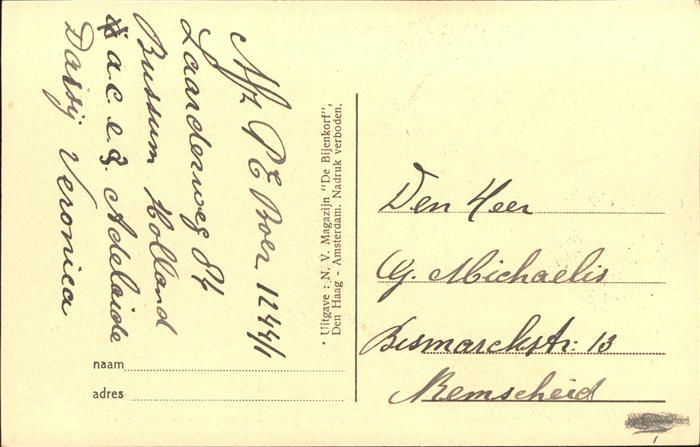 Afz P E Boer 1244/1
Laarderweg 84
Bussum Holland
a.c.e.g. Adelaide
Daisij Veronica
Uitgave: N. V. Magazijn "De Bijenkorf",
Den Haag - Amsterdam. Nadruk verboden.
naam
adres
Den Heer
G. Michaelis
Bismarckstr: 13
Remscheid